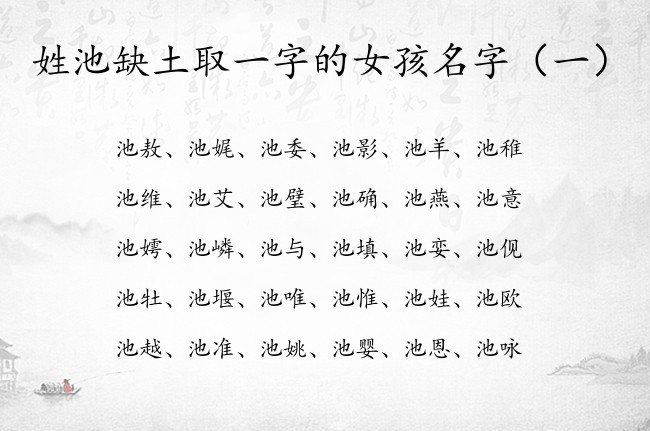 姓池缺土取一字的女孩名字（一）
池敖、池娓、池委、池影、池羊、池稚
池维、池艾、池璧、池确、池燕、池意
池嫮、池嶙、池与、池填、池娈、池伣
池牡、池堰、池唯、池惟、池娃、池欧
池越、池准、池姚、池婴、池恩、池咏